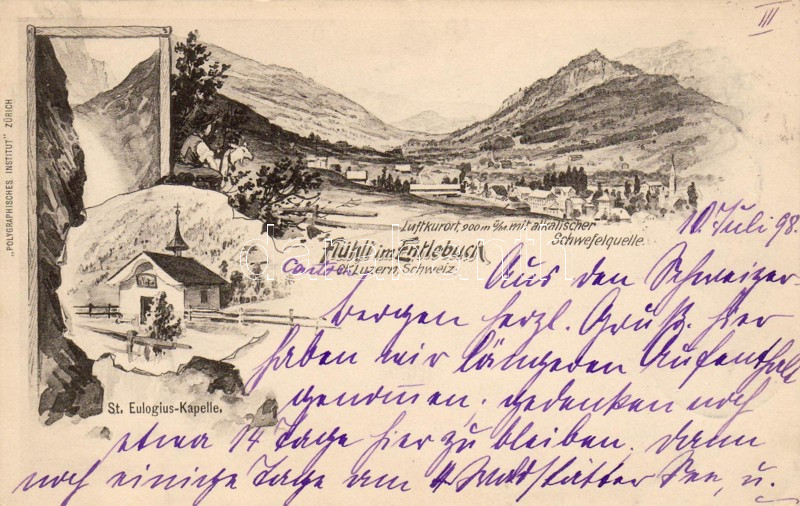 III
„POLYGRAPHISCHES INSTITUT“ ZÜRICH
Luftkurort, 900 m ü/M. mit alkalischer
Schwefelquelle.
Flühli im Entlebuch
Ct. Luzern, Schweiz.
St. Eulogius-Kapelle.
10 Juli 98.
Aus den Schweizer-
bergen herzl. Gruß. hier
haben wir längeren Aufenthalt
genommen. gedenken noch
etwa 14 Tage hier zu bleiben. dann
noch einige Tage am 4 Waldstätter See, u.